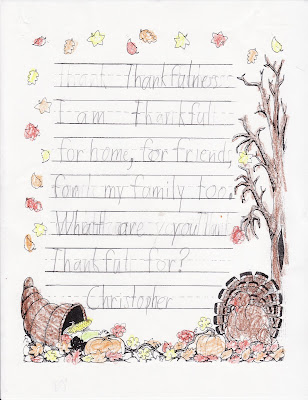 Thank Thankfulness
I am thankful
for home, for friend,
for my family too.
What are you
Thankful for?
Christopher